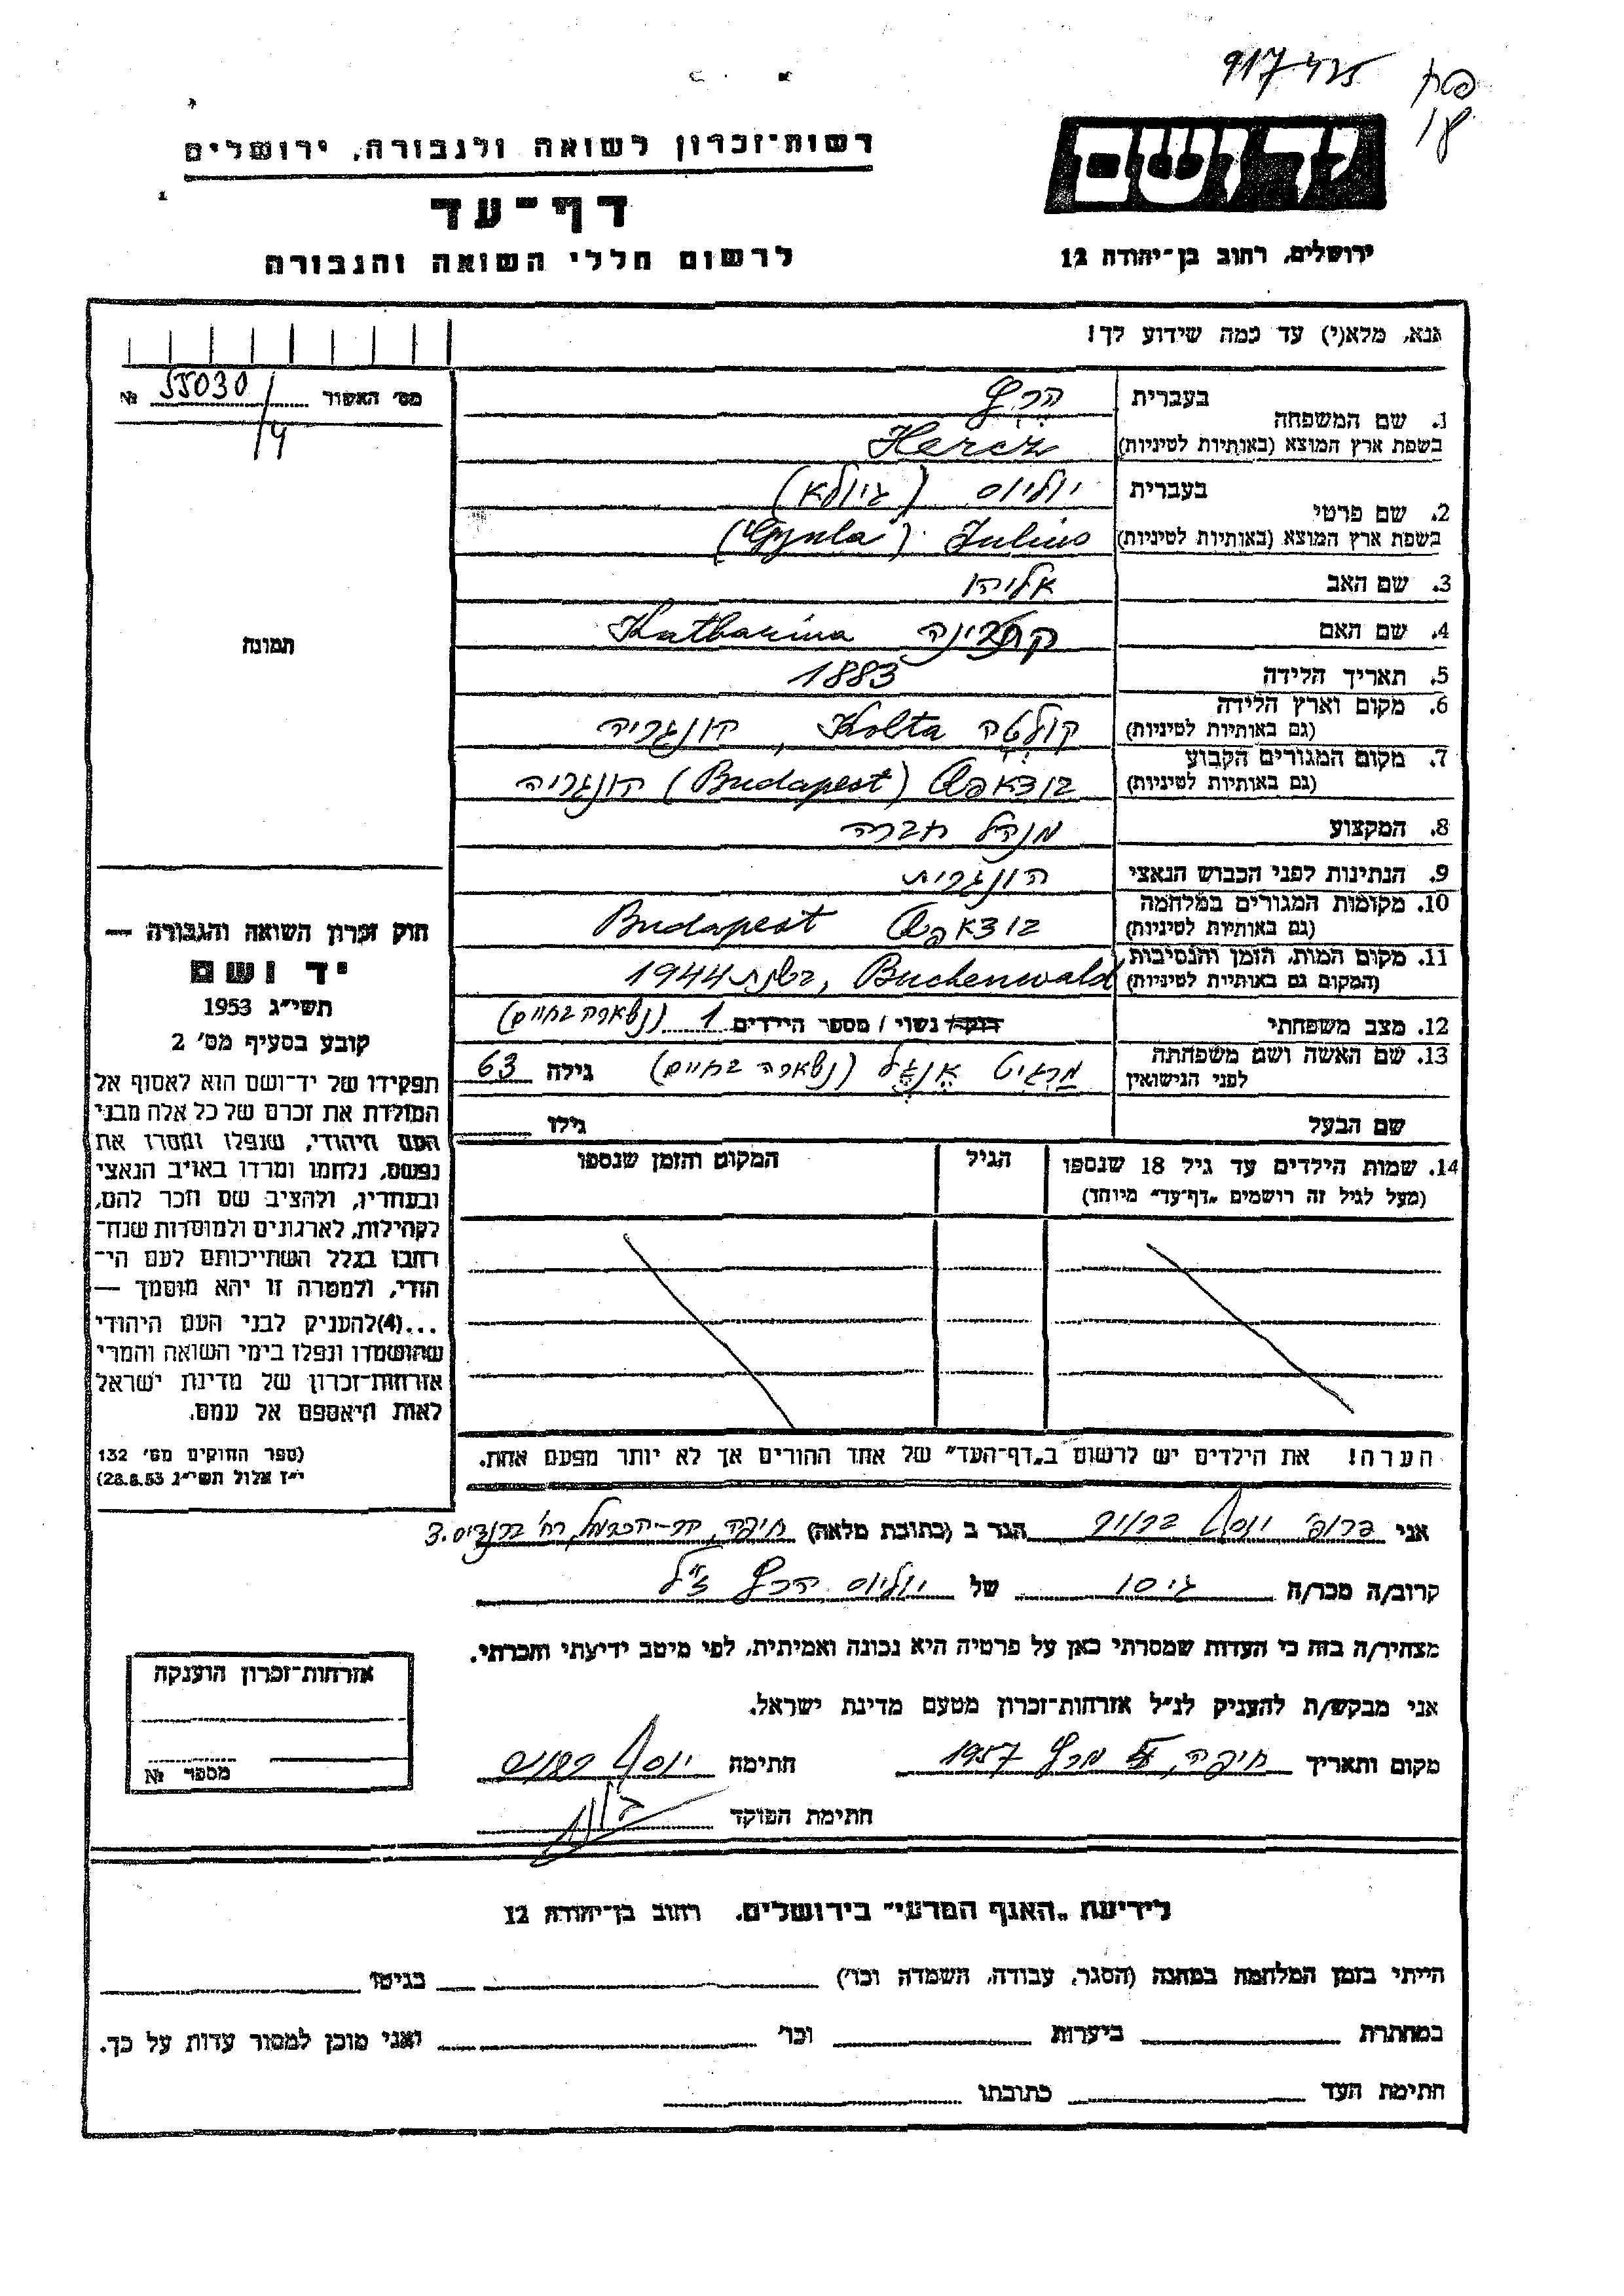 917
יד ושם
ירושלים, רחוב בן־יהודה 12
רשות־זכרון לשואה ולגבורה, ירושלים
דף־עד
לרשום חללי השואה והגבורה
אנא, מלא(י) עד כמה שידוע לך!
מס׳ האשור 55030/4 №
תמונה
1. שם המשפחה
בעברית הרץ
בשפת ארץ המוצא (באותיות לטיניות) Hercz
2. שם פרטי
בעברית יוליוס (גיולא)
בשפת ארץ המוצא (באותיות לטיניות) Julius (Gyula)
3. שם האב אליהו
4. שם האם קתרינה Katharina
5. תאריך הלידה 1883
6. מקום וארץ הלידה
(גם באותיות לטיניות) קולטה Kolta, הונגריה
7. מקום המגורים הקבוע
(גם באותיות לטיניות) בודאפשט (Budapest) הונגריה
8. המקצוע מנהל חברה
9. הנתינות לפני הכבוש הנאצי הונגרית
10. מקומות המגורים במלחמה
(גם באותיות לטיניות) בודאפשט Budapest
11. מקום המות, הזמן והנסיבות
(המקום גם באותיות לטיניות) Buchenwald, בשנת 1944
12. מצב משפחתי רווק/ נשוי / מספר הילדים 1 (נשארה בחיים)
13. שם האשה ושם משפחתה
לפני הנישואין מרגיט אנגל (נשארה בחיים) גילה 63
שם הבעל גילו
14. שמות הילדים עד גיל 18 שנספו הגיל המקום והזמן שנספו
(מעל לגיל זה רושמים „דף־עד״ מיוחד)
הערה! את הילדים יש לרשום ב„דף־העד״ של אחד ההורים אך לא יותר מפעם אחת.
חוק זכרון השואה והגבורה —
יד ושם
תשי״ג 1953
קובע בסעיף מס׳ 2
תפקידו של יד־ושם הוא לאסוף אל
המולדת את זכרם של כל אלה מבני
העם היהודי, שנפלו ומסרו את
נפשם, נלחמו ומרדו באויב הנאצי
ובעוזריו, ולהציב שם וזכר להם,
לקהילות, לארגונים ולמוסדות שנח־
רבו בגלל השתייכותם לעם הי־
הודי, ולמטרה זו יהא מוסמך —
...(4) להעניק לבני העם היהודי
שהושמדו ונפלו בימי השואה והמרי
אזרחות־זכרון של מדינת ישראל
לאות היאספם אל עמם.
(ספר החוקים מס׳ 132
י״ז אלול תשי״ג 28.8.53)
אני פרופ׳ יוסף ברויר הגר ב (כתובת מלאה) חיפה, הר־הכרמל, רח׳ ברנדיס 3.
קרוב/ה מכר/ה גיסו של יוליוס הרץ ז״ל
מצהיר/ה בזה כי העדות שמסרתי כאן על פרטיה היא נכונה ואמיתית, לפי מיטב ידיעתי והכרתי.
אני מבקש/ת להעניק לנ״ל אזרחות־זכרון מטעם מדינת ישראל.
מקום ותאריך חיפה, מרץ 1957 חתימה יוסף
חתימת הפוקד
אזרחות־זכרון הוענקה
מספר №
לידיעת „האגף המדעי״ בירושלים, רחוב בן־יהודה 12
הייתי בזמן המלחמה במחנה (הסגר, עבודה, השמדה וכו׳) בגיטו
במחתרת ביערות וכו׳ ואני מוכן למסור עדות על כך.
חתימת העד כתובתו